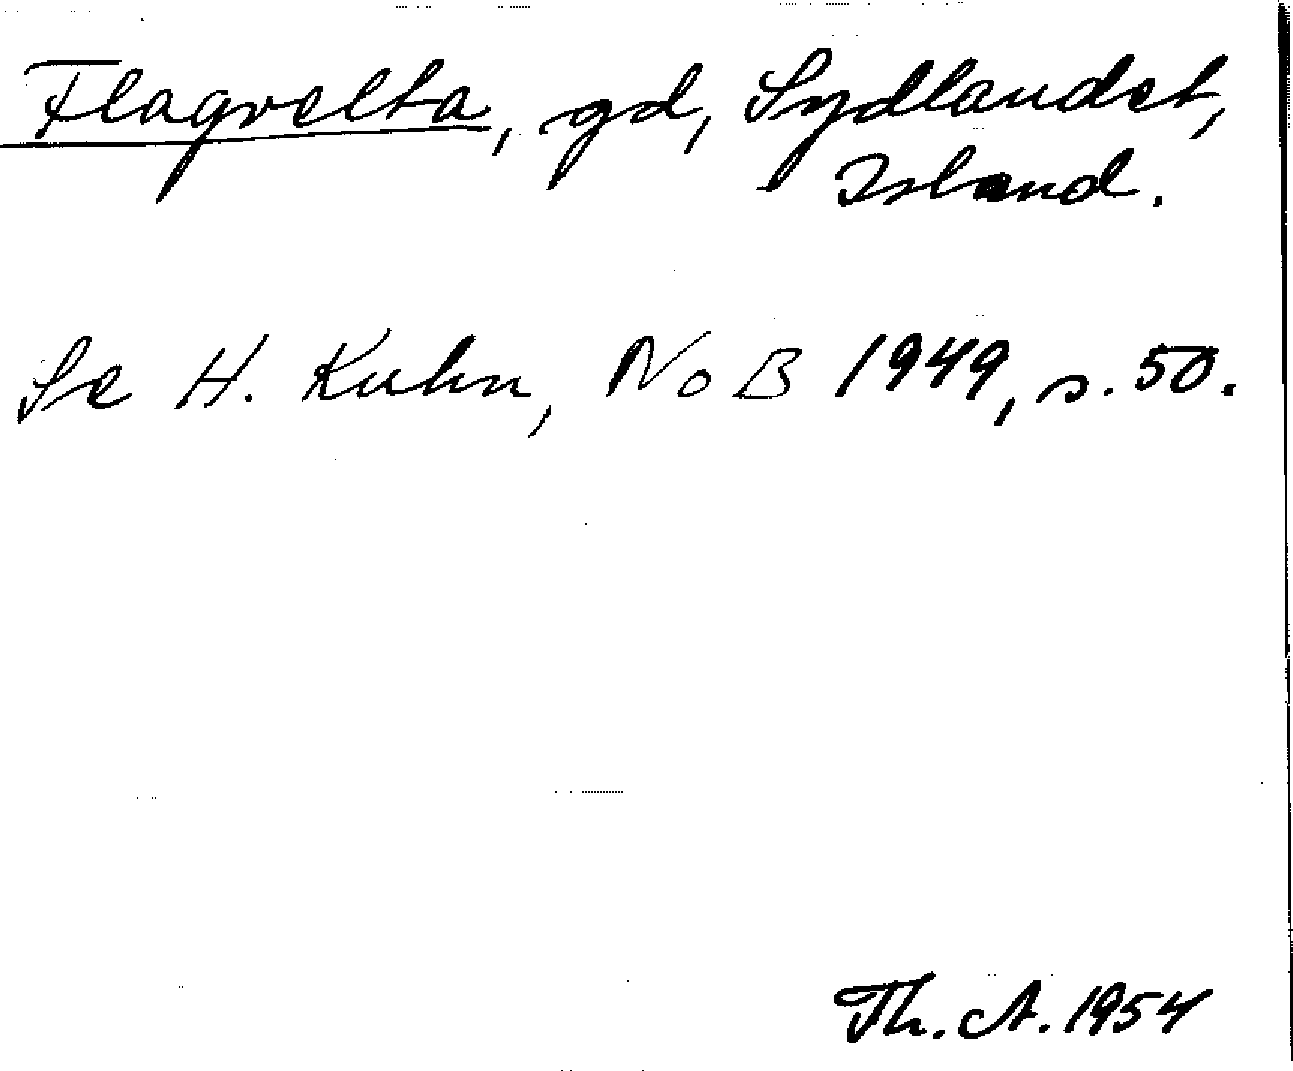 Flagvelta, gd, Sydlandet,
Island.
Se H. Kuhn, NoB 1949, s. 50.
Th. A. 1954